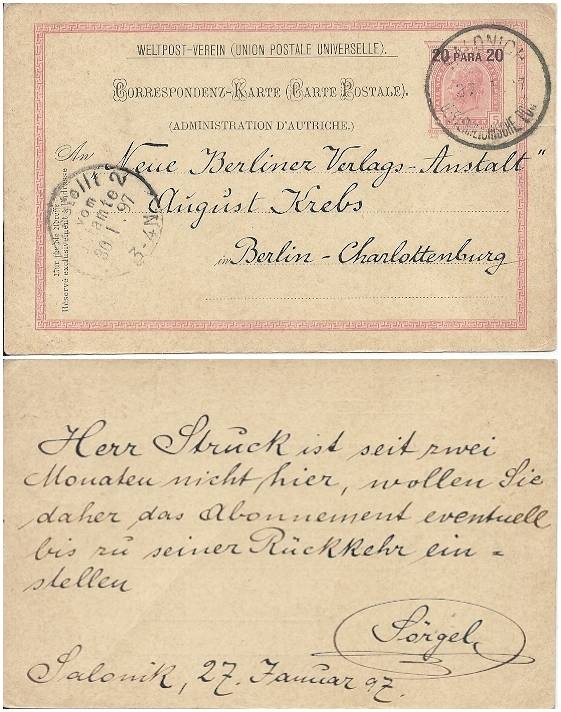 WELTPOST-VEREIN (UNION POSTALE UNIVERSELLE).
CORRESPONDENZ-KARTE (CARTE POSTALE).
(ADMINISTRATION D'AUTRICHE.)
20 PARA 20
5
An „Neue Berliner Verlags-Anstalt"
August Krebs
in Berlin - Charlottenburg
Nur für die Adresse
Réservé exclusivement à l'adresse
vom
30 1 97
3-4N
Herr Struck ist seit zwei
Monaten nicht hier, wollen Sie
daher das Abonnement eventuell
bis zu seiner Rückkehr ein=
stellen
Sörgel
Salonik, 27. Januar 97.